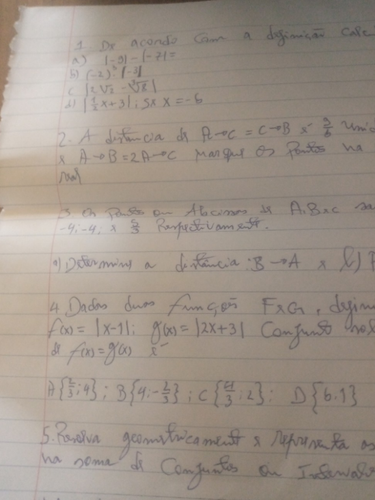 1. De acordo com a definição calc
a) |-9| - |-7| =
b) (-2)³ · |-3|
c) |2√2 - √8|
d) |1/2 x + 3|; sx x = -6
2. A distância de A→C = C→B é 9/6 unid
x A→B = 2A→C marque os pontos na
real
3. Os pontos ou Abcissas de A; B x C sa
-4; -4; x 2/3 Respectivamente.
a) Determine a distância: B→A x b)
4. Dadas duas funções F x G, defini
f(x) = |x-1|; g(x) = |2x+3| Conjunto sol
de f(x) = g(x) é
A{2/3; 4}; B{4; -2/3}; C{ /3; 2}; D{6.1}
5. Resolva geometricamente x represente os
na soma de Conjuntos ou Interval